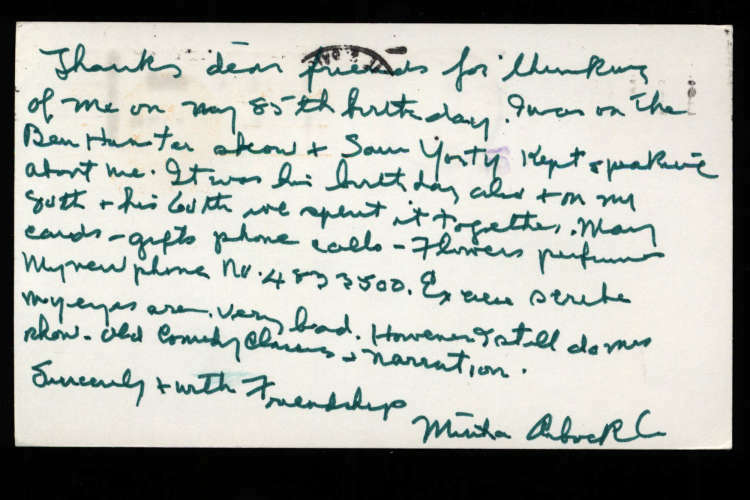 Thanks dear friends for thinking
of me on my 85th birthday. I was on the
Ben Hunter show + Sam Yorty Kept speaking
about me. It was his birthday also + on my
80th + his 60th we spent it together. Many
cards - gifts phone calls - Flowers perfumes
My new phone No. 483 3500. Excuse scribe
my eyes are very bad. However I still do my
show - old Comedy Classics + narration.
Sincerely + with Friendship
Minta Arbuckle